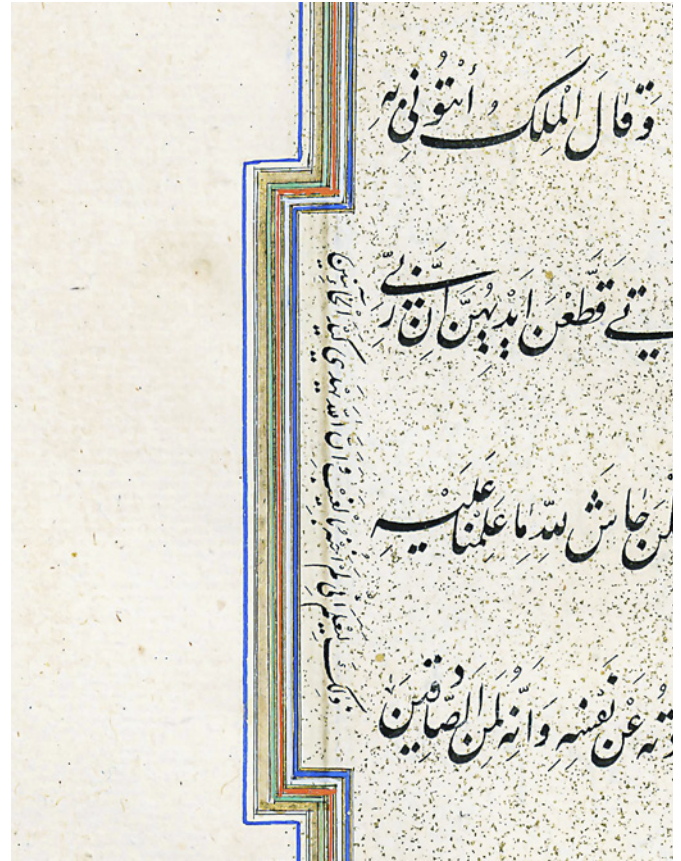 وَقَالَ الْمَلِكُ أئْتُونِي بِهِ
قَطَّعْنَ اَيْدِيَهُنَّ اِنَّ رَبِّي
حَاشَ لِلّهِ مَا عَلِمْنَا عَلَيْهِ
عَنْ نَفْسِهِ وَاِنَّهُ لَمِنَ الصَّادِقِينَ
ذَلِكَ لِيَعْلَمَ اَنِّي لَمْ اَخُنْهُ بِالْغَيْبِ وَاَنَّ اللّهَ يَهْدِي كَيْدَ الْخَآئِنِينَ